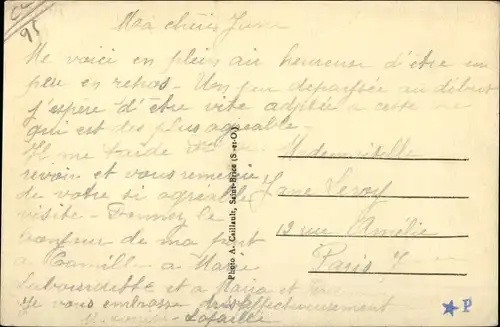 Ma chère Jane
Me voici en plein air heureuse d'être un
peu en repos - Un peu depaysée au début
j'espère d'être vite adaptée a cette vie
qui est des plus agréable -
Il me tarde de
revoir et vous remercie
de votre si agréable
visite - Donnez le
bonjour de ma part
a Camille a Marie
et a Maria et
Je vous embrasse affectueusement
Lafaille
Mademoiselle
Jane Leroy
12 rue Amélie
Paris 7
Photo A. Caillault, Saint-Brice (S.-et-O.)
95
★P